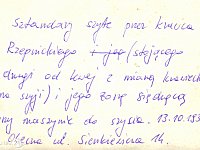 Sztandary szyte przez krawca
Rzepnickiego i jego (stojącego
drugi od lewej z miarą krawiecką
na szyji) i jego żonę siedzącą
przy maszynie do szycia. 13.10.193
Obecna ul. Sienkiewicza 14.